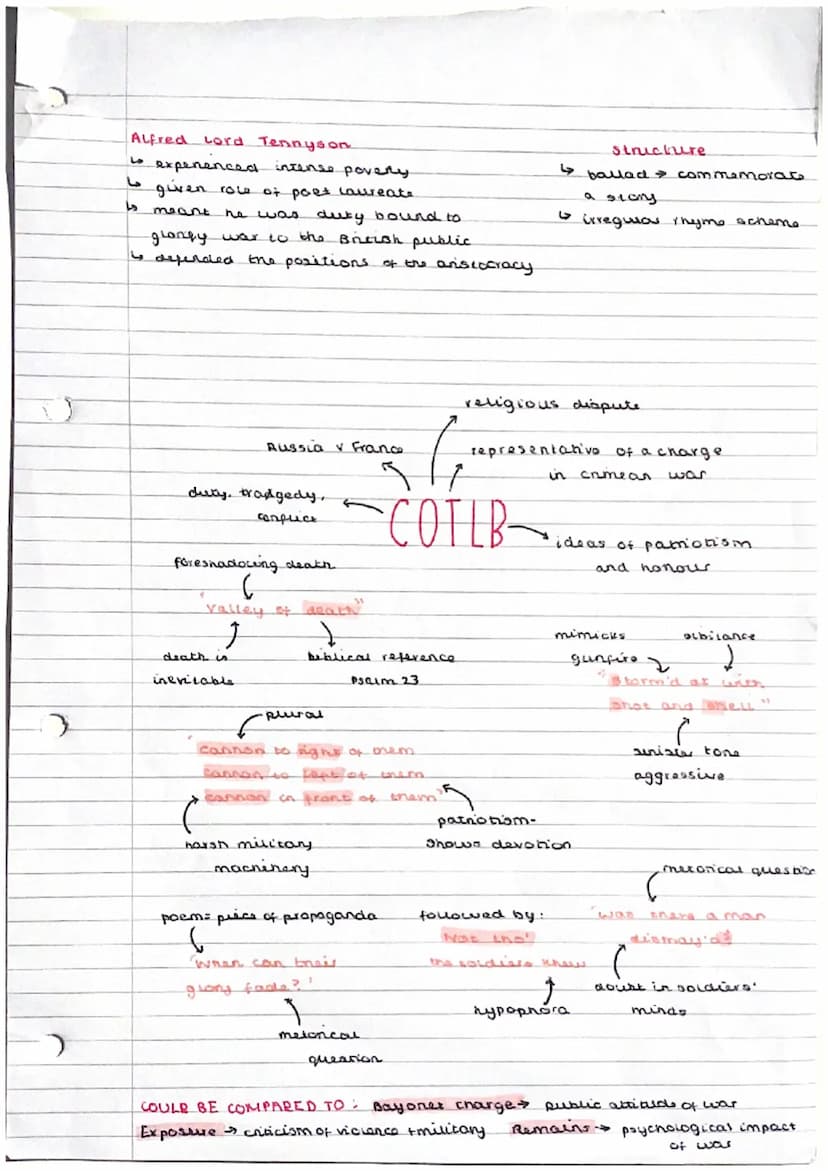 Alfred Lord Tennyson
↳ experienced intense poverty
↳ given role of poet laureate
↳ meant he was duty bound to
glorify war to the British public
↳ defended the positions of the aristocracy
Structure
↳ ballad → commemorate
a story
↳ irregular rhyme scheme
religious dispute
Russia v France
representative of a charge
in crimean war
duty, tradgedy,
conflict
COTLB
ideas of patriotism
and honour
foreshadowing death
"valley of death"
death is
inevitable
biblical reference
Psalm 23
mimicks
gunfire
sibilance
"Storm'd at with
shot and shell"
sinister tone
aggressive
plural
"cannon to right of them
cannon to left of them
cannon in front of them"
harsh military
machinery
patriotism-
shows devotion
poem = piece of propaganda
'When can their
glory fade?'
rhetorical
question
followed by:
'Not tho'
the soldiers knew
hypophora
rhetorical question
'was there a man
dismay'd?
doubt in soldiers'
minds
COULD BE COMPARED TO: Bayonet charge → public attitude of war
Exposure → criticism of violence + military Remains → psychological impact
of war